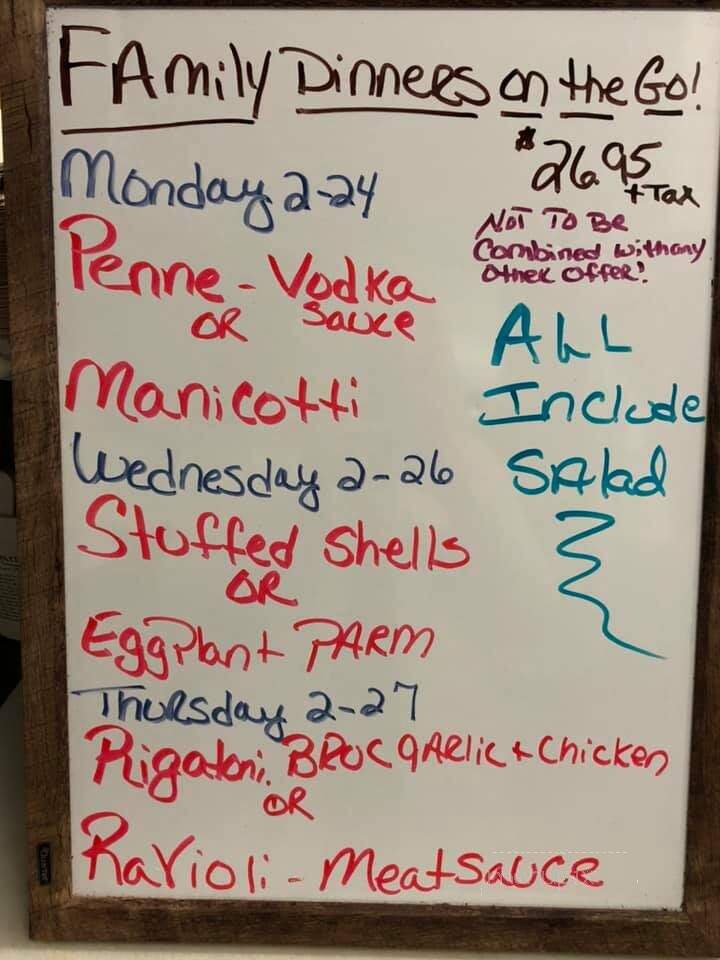 FAmily Dinners on the Go!
$26.95
+ Tax
Monday 2-24
NOT TO Be
Combined with any
other offer!
Penne - Vodka
OR Sauce
ALL
Include
SAlad
Manicotti
Wednesday 2-26
Stuffed Shells
OR
EggPlant PARM
Thursday 2-27
Rigatoni, BROC gARlic + Chicken
OR
Ravioli - Meatsauce